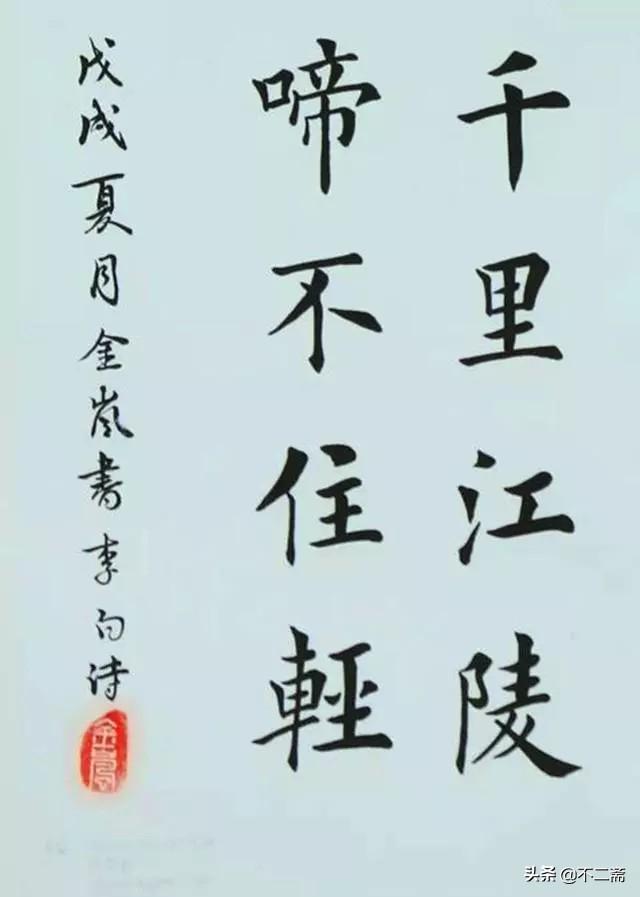 千里江陵
啼不住輕
戊戌夏月金嵐書李白詩
头条 @不二斋